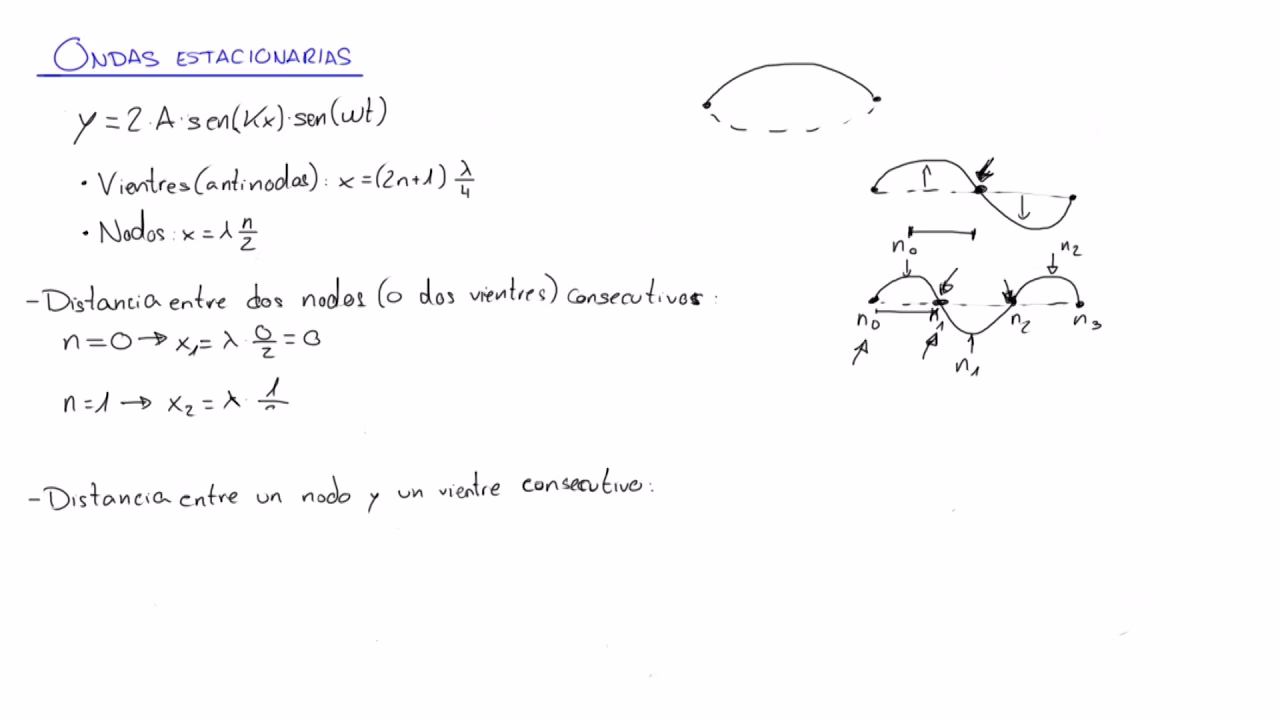 ONDAS ESTACIONARIAS
y = 2·A·sen(Kx)·sen(wt)
• Vientres (antinodos): x = (2n+1) λ/4
• Nodos: x = λ n/2
- Distancia entre dos nodos (o dos vientres) consecutivos:
n = 0 → x₁ = λ · 0/2 = 0
n = 1 → x₂ = λ · 1/
- Distancia entre un nodo y un vientre consecutivo:
n₀ n₂
n₀ n₁ n₂ n₃
n₁